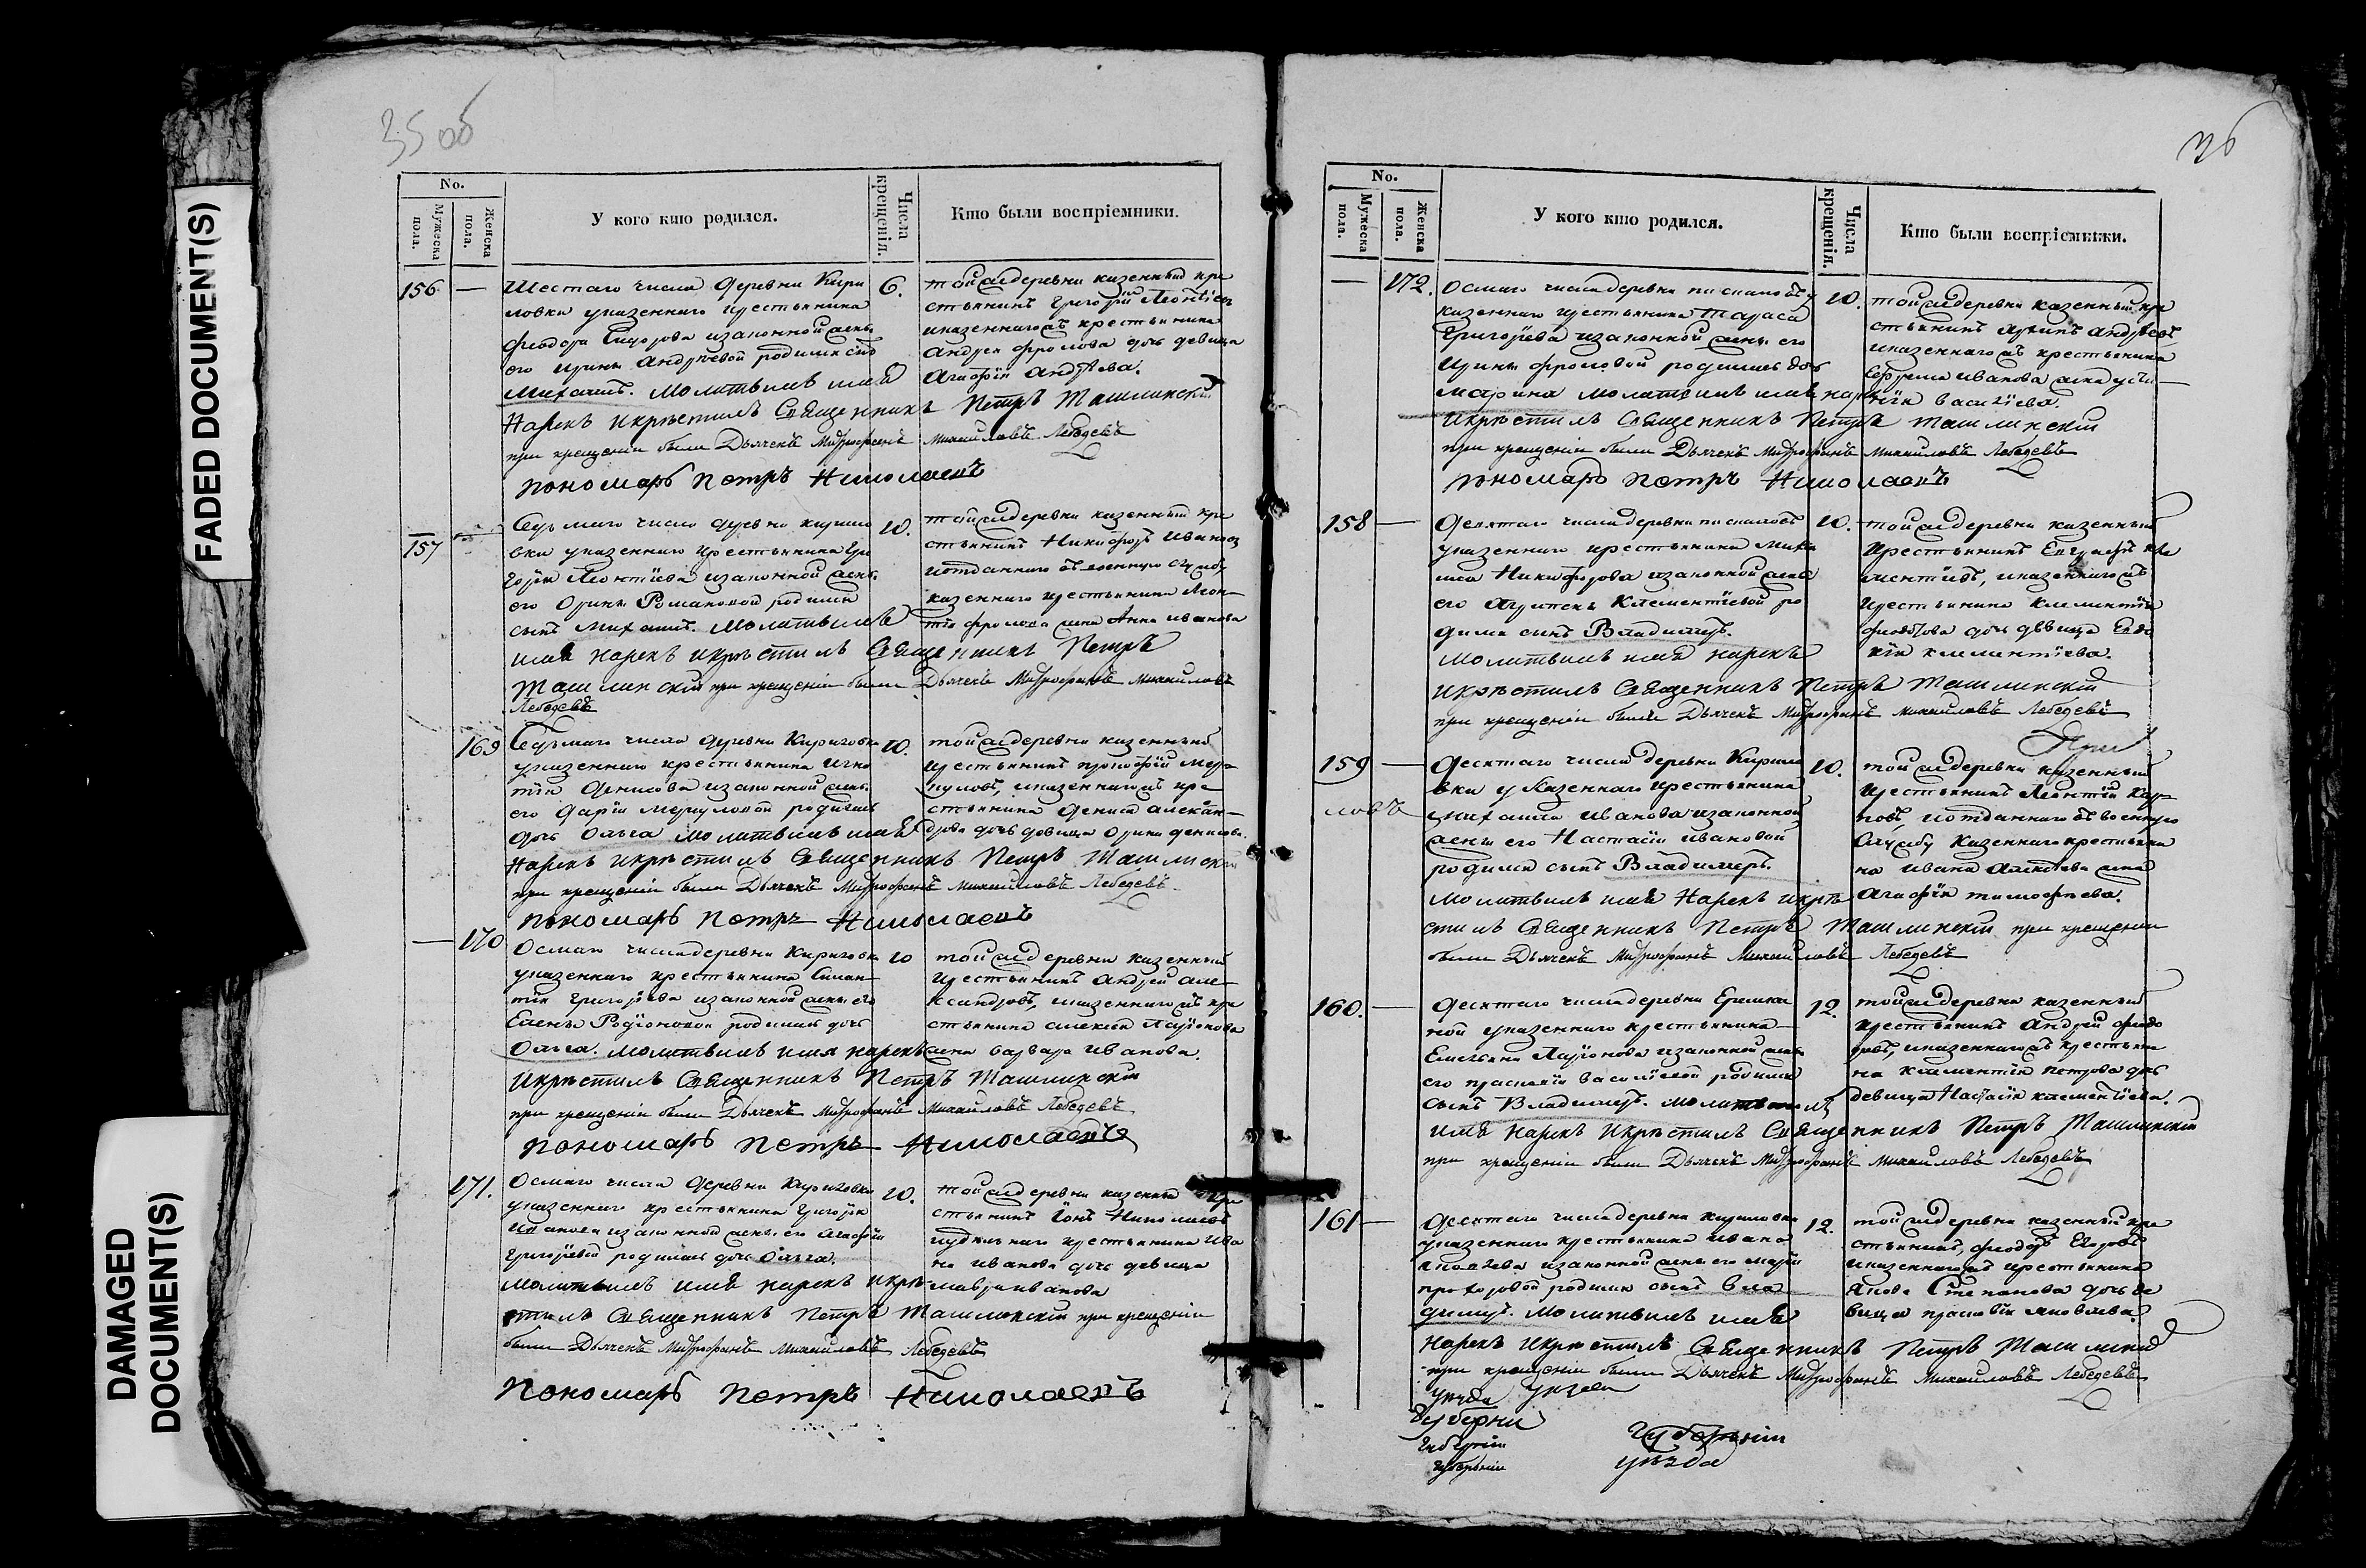 FADED DOCUMENT(S)
DAMAGED
DOCUMENT(S)
35 об
No.
Мужеска пола.
Женска пола.
У кого кто родился.
Числа крещенія.
Кто были воспріемники.
156 —
Шестаго числа деревни Кири
ловки указеннаго крестьянина
Феодора Сидорова изаконной жены
его Ирины Андреевой родился сынъ
Михаилъ. Молитвилъ имя
Нарекъ икрестилъ Священникъ Петръ Ташлинскій
при крещеніи были Дьячекъ Митрофанъ Михайловъ Лебедевъ
пономарь Петръ Николаевъ
6.
тойже деревни казенный кре
стьянинъ Григорій Леонтіевъ
иказеннагожъ крестьянина
Андрея Фролова дочь девица
Агафія Андреева.
157 —
Седьмаго числа деревни кирило
вки указеннаго крестьянина Гри
горія Леонтіева изаконной жены
его Орины Романовой родился
сынъ Михаилъ. Молитвилъ
имя нарекъ икрестилъ Священникъ Петръ
Ташлинскій при крещеніи были Дьячекъ Митрофанъ Михайловъ
Лебедевъ
10.
тойже деревни казенный кре
стьянинъ Никифоръ Ивановъ
иотданнаго въ военную службу
казеннаго крестьянина Леон
тія Фролова жена Анна Иванова
169
Седьмаго числа деревни Кириловки
указеннаго крестьянина Игна
тія Денисова изаконной жены
его Дарьи Меркуловой родилась
дочь Ольга. Молитвилъ имя
Нарекъ икрестилъ Священникъ Петръ Ташлинскій
при крещеніи были Дьячекъ Митрофанъ Михайловъ Лебедевъ
пономарь Петръ Николаевъ
10.
тойже деревни казенный
крестьянинъ прокофій Мер-
куловъ, иказеннагожъ кре
стьянина Дениса Алексан-
дрова дочь девица Орина денисова.
— 170
Осмаго числа деревни Кириловки
указеннаго крестьянина
Григорьева изаконной жены его
Елены Родіоновой родилась дочь
Ольга. Молитвилъ имя нарекъ
икрестилъ Священникъ Петръ Ташлинскій
при крещеніи были Дьячекъ Митрофанъ Михайловъ Лебедевъ
пономарь Петръ Николаевъ
10
тойже деревни казенный
крестьянинъ Андрей Але-
ксандровъ, иказеннагожъ кре
стьянина Алексея Ларіонова
жена варвара Иванова.
171.
Осмаго числа деревни Кириловки
указеннаго крестьянина Григорія
Иванова изаконной жены его Агафьи
Григорьевой родилась дочь Ольга.
Молитвилъ имя нарекъ икре-
стилъ Священникъ Петръ Ташлинскій при крещеніи
были Дьячекъ Митрофанъ Михайловъ Лебедевъ
Пономарь Петръ Николаевъ
10.
тойже деревни казенный кре
стьянинъ Іонъ Николаевъ
крестьянина Ива
на Иванова дочь девица
мавра иванова
36
No.
Мужеска пола.
Женска пола.
У кого кто родился.
Числа крещенія.
Кто были воспріемники.
— 172.
Осмаго числа деревни
казеннаго крестьянина Тараса
Григорьева изаконной жены его
Ирины Фроловой родилась дочь
Марина молитвилъ имя нарекъ
икрестилъ Священникъ Петръ Ташлинскій
при крещеніи были Дьячекъ Митрофанъ Михайловъ Лебедевъ
пономарь Петръ Николаевъ
10.
тойже деревни казенный кре
стьянинъ Архипъ Андреевъ
иказеннагожъ крестьянина
Ефрема Иванова жена усти
нія васильева.
158 —
Десятаго числа деревни
указеннаго крестьянина Миха
ила Никифорова изаконной жены
его Агрипены Клементіевой ро
дился сынъ Владимеръ.
Молитвилъ имя нарекъ
икрестилъ Священникъ Петръ Ташлинскій
при крещеніи были Дьячекъ Митрофанъ Михайловъ Лебедевъ
10.
тойже деревни казенный
крестьянинъ Евграфъ Кле
ментіевъ, иказеннагожъ
крестьянина Клементія
Федотова дочь девица Евдо
кія клементіева.
При
159 —
ловъ
Десятаго числа деревни Кирило
вки указеннаго крестьянина
михаила Иванова изаконной
жены его Настасіи ивановой
родился сынъ Владимеръ.
Молитвилъ имя Нарекъ икре
стилъ Священникъ Петръ Ташлинскій при крещеніи
были Дьячекъ Митрофанъ Михайловъ Лебедевъ
10.
тойже деревни казенный
крестьянинъ Леонтій Кар-
повъ, иотданнаго въ военную
службу Казеннаго крестьяни
на ивана Алексеева жена
Агафія тимофеева.
160. —
Десятаго числа деревни Ерешки
ной указеннаго крестьянина
Емельяна Ларіонова изаконной жены
его прасковіи васильевой родился
сынъ Владимеръ. молитвилъ
имя нарекъ икрестилъ Священникъ Петръ Ташлинскій
при крещеніи были Дьячекъ Митрофанъ Михайловъ Лебедевъ
12.
тойже деревни казенный
крестьянинъ Андрей Феодо
ровъ, иказеннагожъ крестьяни
на клементія петрова дочь
девица Настасія клементіева.
161 —
Десятаго числа деревни кириловки
указеннаго крестьянина ивана
яковлева изаконной жены его марьи
прохоровой родился сынъ Вла
димеръ. Молитвилъ имя
Нарекъ икрестилъ Священникъ Петръ Ташлинскій
при крещеніи были Дьячекъ Митрофанъ Михайловъ Лебедевъ
12.
тойже деревни казенный кре
стьянинъ, феодоръ Егоровъ
иказеннагожъ крестьянина
Якова Степанова дочь де
вица прасковія яковлева
уезда
Губерни
Губерніи
Губерніи
Губерніи
уезда